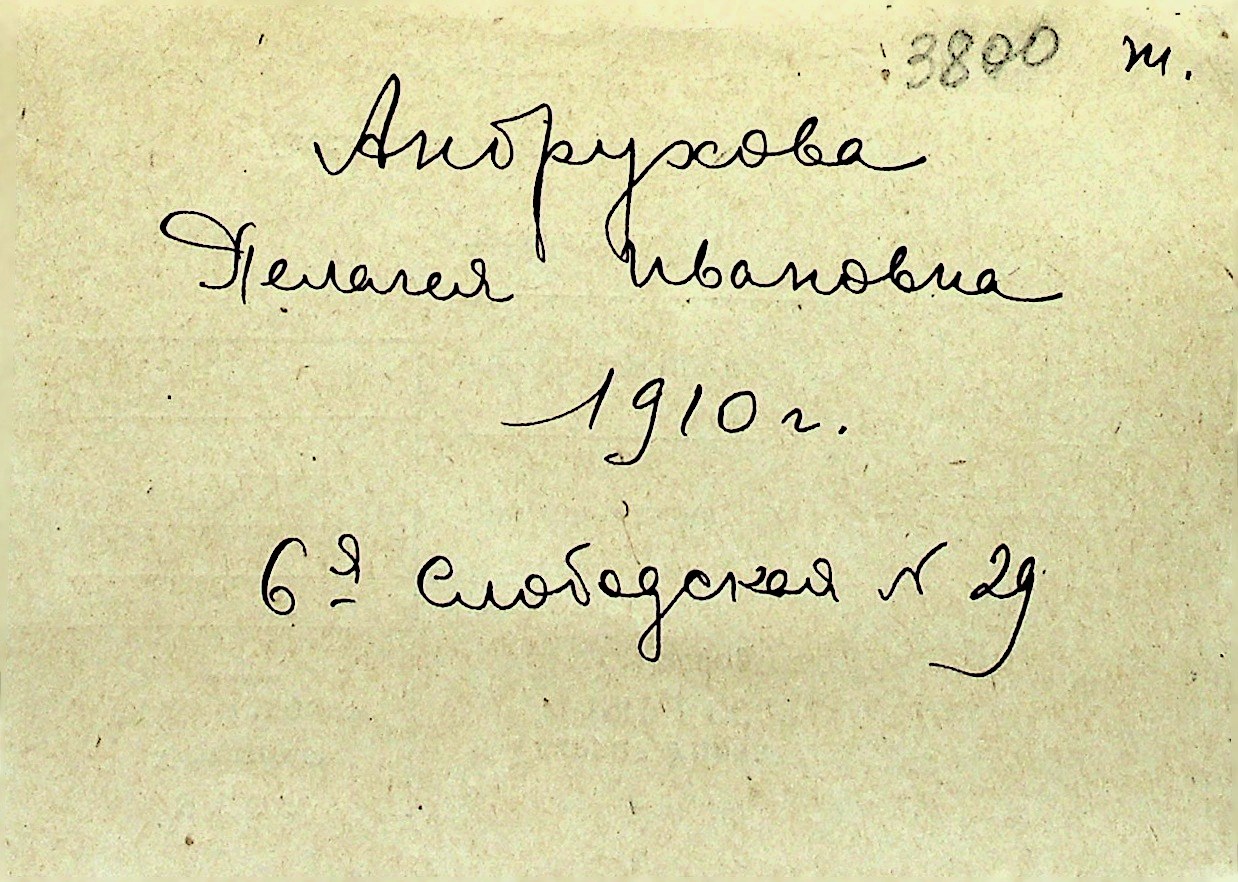 3800 т.
Андрухова
Пелагея Ивановна
1910 г.
6-я Слободская N 29